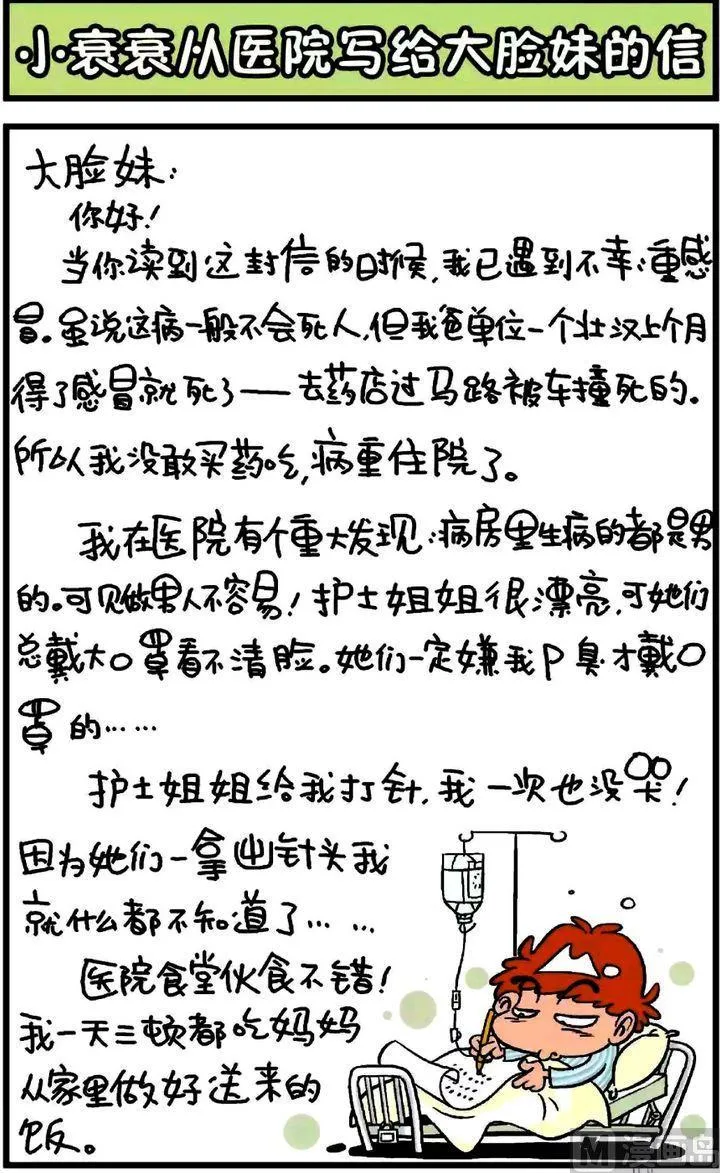 小衰衰从医院写给大脸妹的信
大脸妹:
你好!
当你读到这封信的时候,我已遇到不幸:重感
冒。虽说这病一般不会死人,但我爸单位一个壮汉上个月
得了感冒就死了——去药店过马路被车撞死的。
所以我没敢买药吃,病重住院了。
我在医院有个重大发现:病房里生病的都是男
的。可见做男人不容易!护士姐姐很漂亮,可她们
总戴大口罩看不清脸。她们一定嫌我P臭才戴口
罩的……
护士姐姐给我打针,我一次也没哭!
因为她们一拿出针头我
就什么都不知道了……
医院食堂伙食不错!
我一天三顿都吃妈妈
从家里做好送来的
饭。
漫画岛